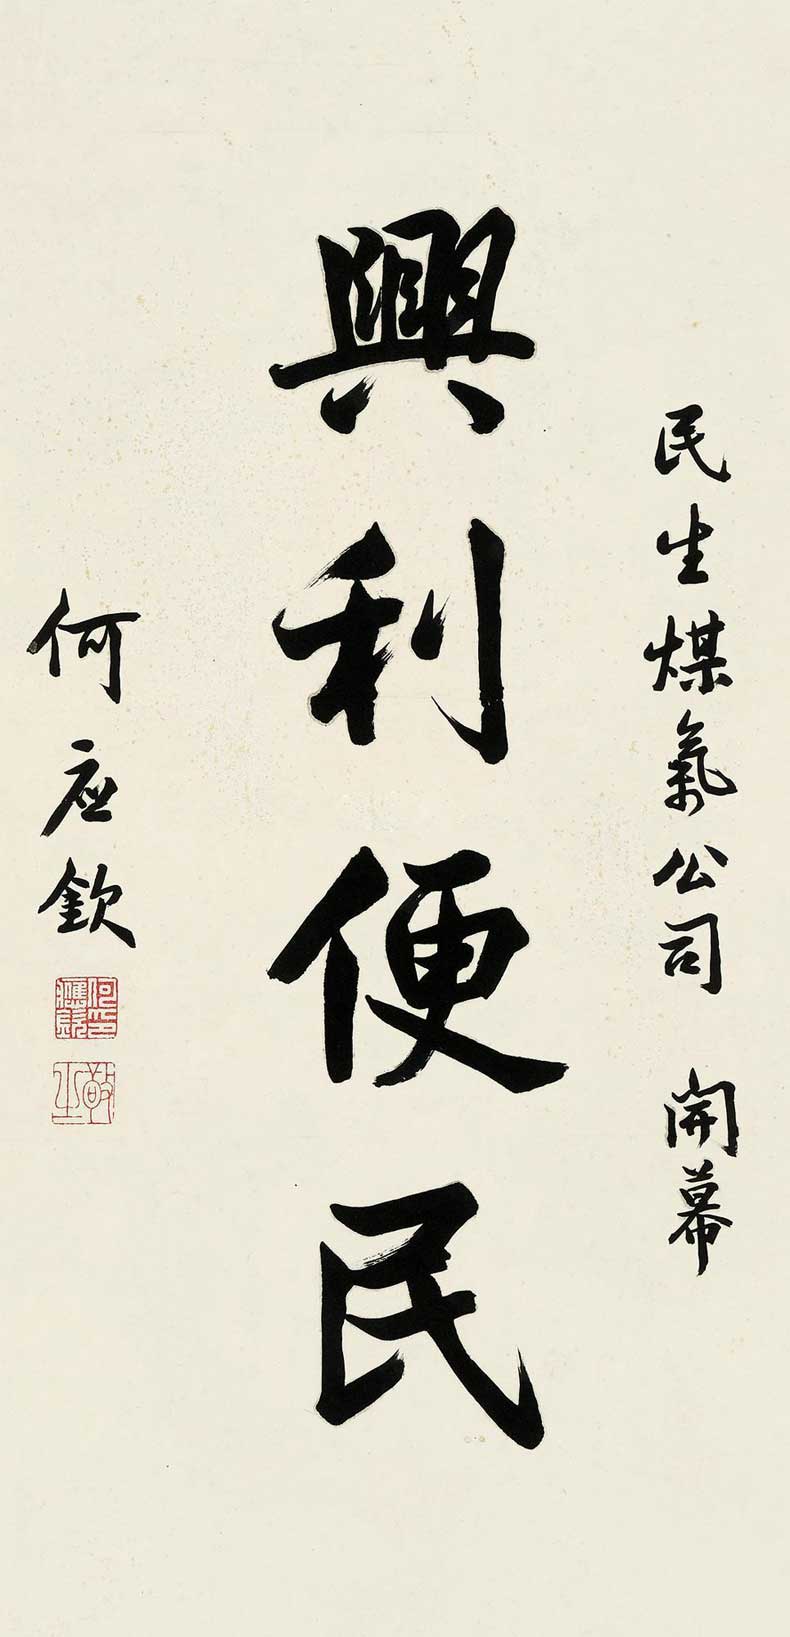 民生煤氣公司 開幕
興利便民
何应欽
何應欽印
敬之